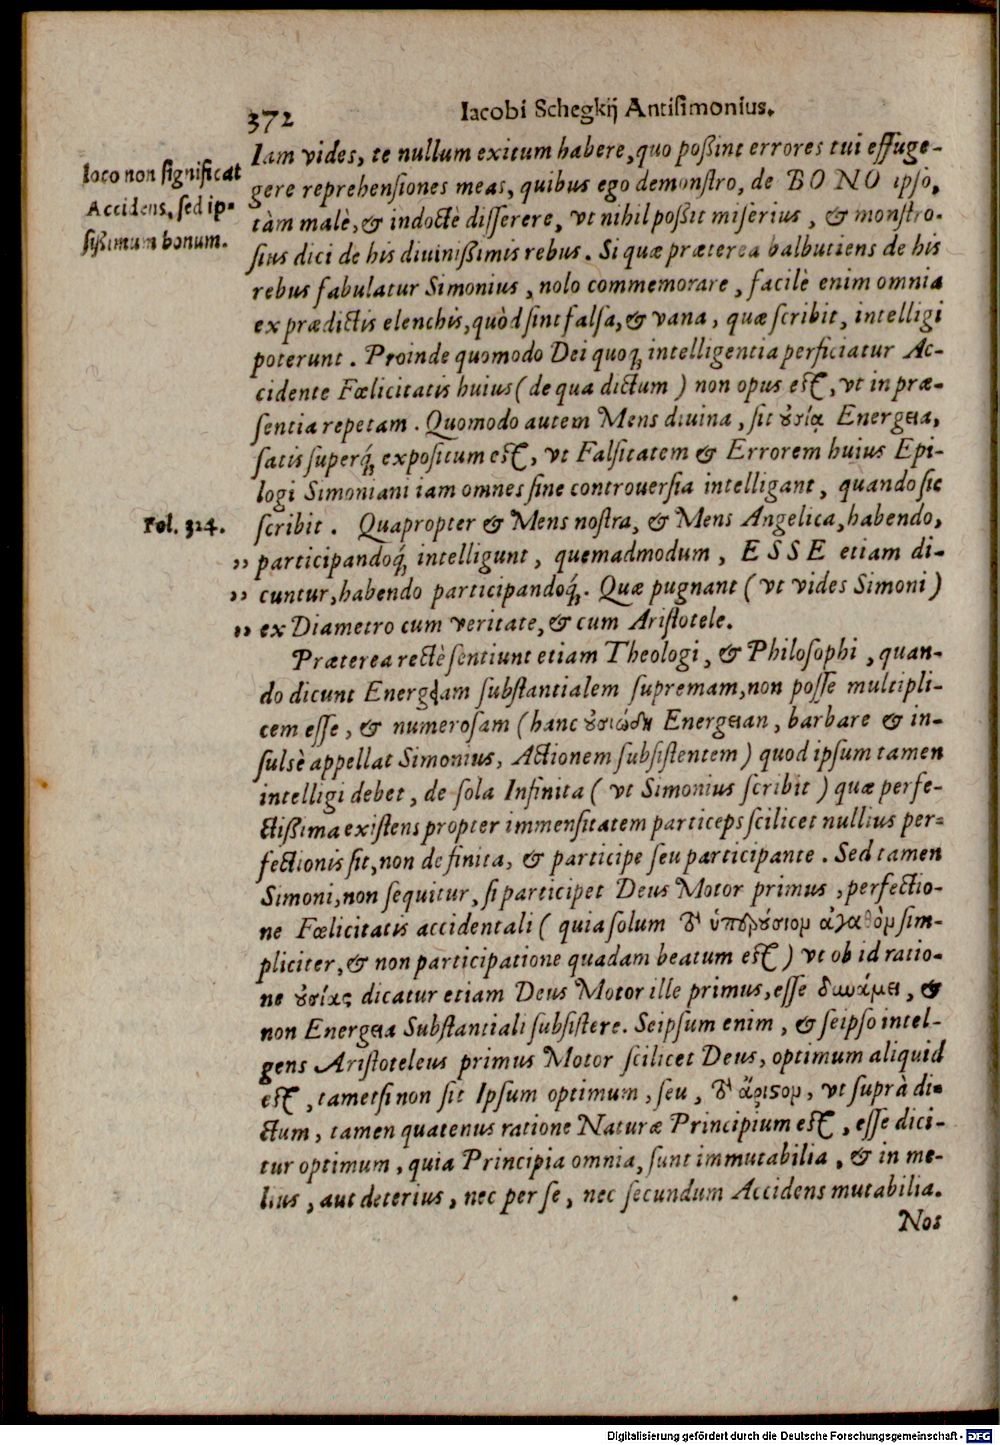 372
Iacobi Schegkij Antisimonius.
loco non significat
Accidens, sed ip-
sißimum bonum.
Iam vides, te nullum exitum habere, quo poßint errores tui effuge-
gere reprehensiones meas, quibus ego demonstro, de BONO ipso,
tàm malè, & indoctè disserere, vt nihil poßit misèrius, & monstro-
sius dici de his diuinißimis rebus. Si quæ præterea balbutiens de his
rebus fabulatur Simonius, nolo commemorare, facilè enim omnia
ex prædictis elenchis, quòd sint falsa, & vana, quæ scribit, intelligi
poterunt. Proinde quomodo Dei quoq; intelligentia perficiatur Ac-
cidente Fœlicitatis huius (de qua dictum) non opus est, vt in præ-
sentia repetam. Quomodo autem Mens diuina, sit ȣσία Energeia,
satis superq́; expositum est, vt Falsitatem & Errorem huius Epi-
logi Simoniani iam omnes sine controuersia intelligant, quando sic
Fol. 324.
scribit. Quapropter & Mens nostra, & Mens Angelica, habendo,
,, participandoq́; intelligunt, quemadmodum, ESSE etiam di-
,, cuntur, habendo participandoq́;. Quæ pugnant (vt vides Simoni)
,, ex Diametro cum veritate, & cum Aristotele.
Præterea rectè sentiunt etiam Theologi, & Philosophi, quan-
do dicunt Energeiam substantialem supremam, non posse multipli-
cem esse, & numerosam (hanc ȣσιώδη Energeian, barbare & in-
sulsè appellat Simonius, Actionem subsistentem) quod ipsum tamen
intelligi debet, de sola Infinita (vt Simonius scribit) quæ perfe-
ctißima existens propter immensitatem particeps scilicet nullius per-
fectionis sit, non definita, & participe seu participante. Sed tamen
Simoni, non sequitur, si participet Deus Motor primus, perfectio-
ne Fœlicitatis accidentali (quia solum τὸ ὑπερȣ́σιον ἀγαθὸν sim-
pliciter, & non participatione quadam beatum est) vt ob id ratio-
ne ȣσίας dicatur etiam Deus Motor ille primus, esse δυνάμει, &
non Energeia Substantiali subsistere. Seipsum enim, & seipso intel-
gens Aristoteleus primus Motor scilicet Deus, optimum aliquid
est, tametsi non sit Ipsum optimum, seu, τὸ ἄριϛον, vt suprà di-
ctum, tamen quatenus ratione Naturæ Principium est, esse dici-
tur optimum, quia Principia omnia, sunt immutabilia, & in me-
lius, aut deterius, nec per se, nec secundum Accidens mutabilia.
Nos
Digitalisierung gefördert durch die Deutsche Forschungsgemeinschaft - DFG